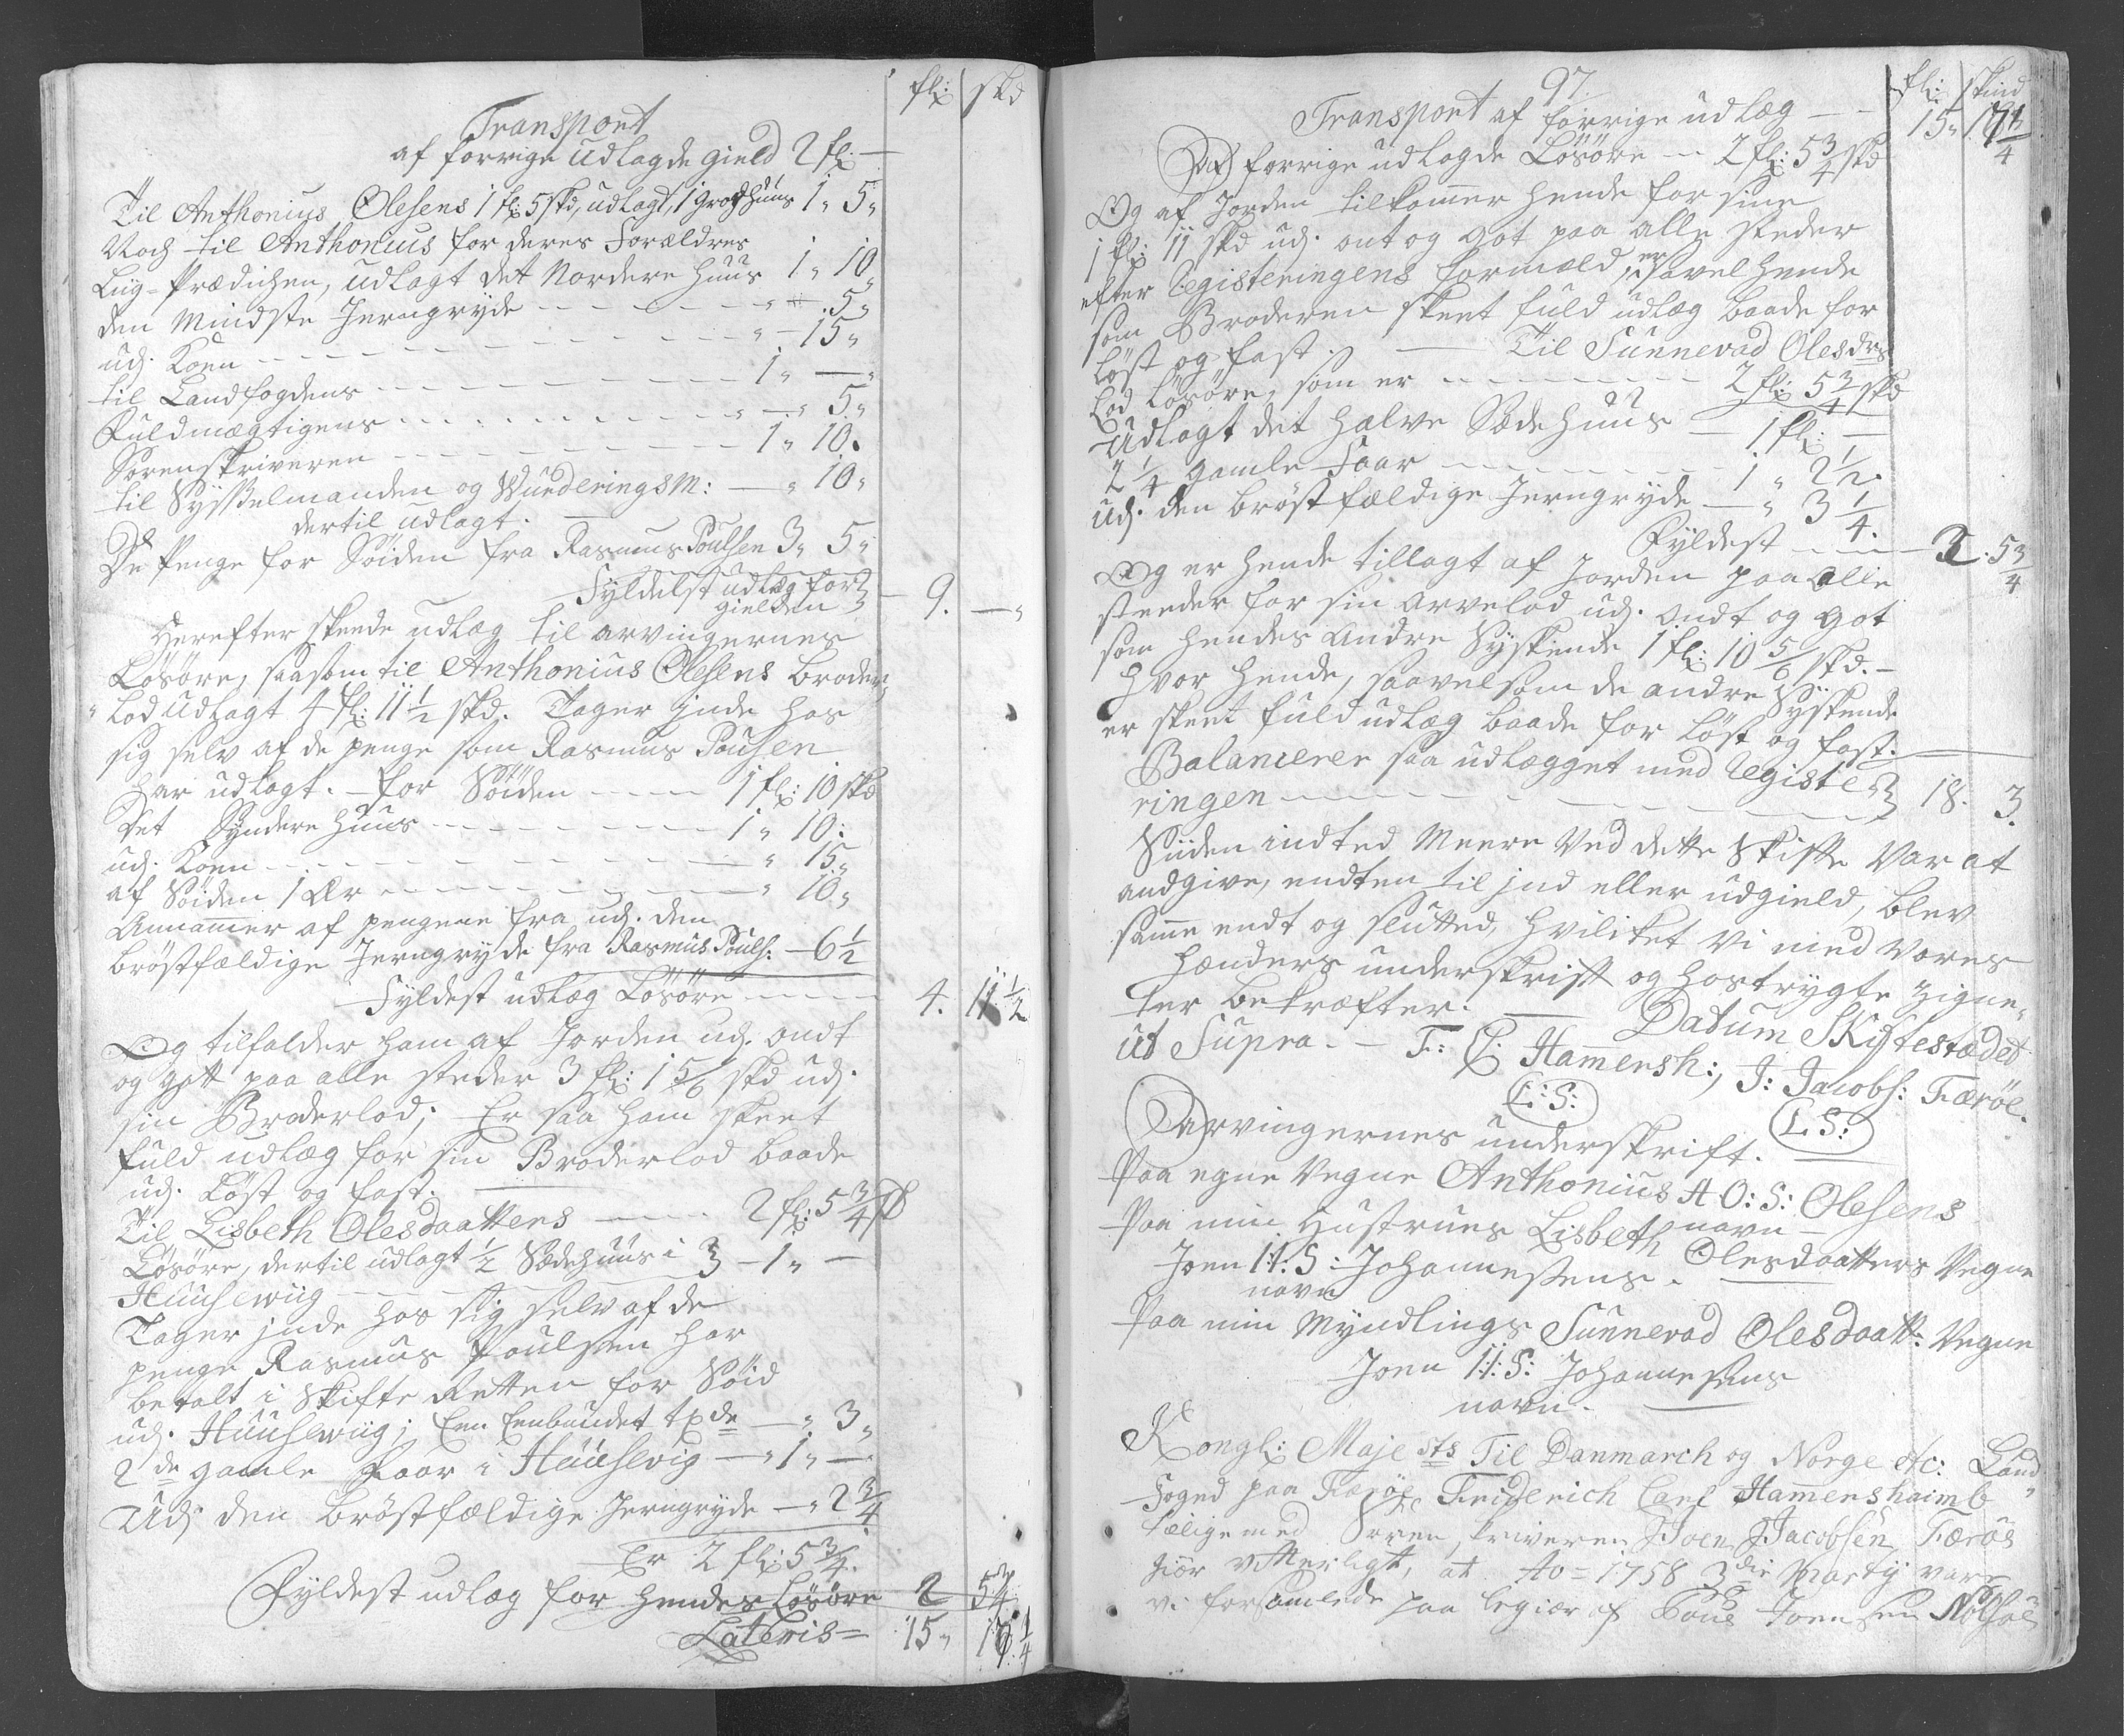 fl: skd
Transport
af forrige udlagde gield 2 fl: —
Til Anthonius Olesens 1 fl: 5 skd, udlagt, 1 Grod huus 1 „ 5 „
Noch til Anthonius for deres Forældres
Liig-Prædichen, udlagt det Nordere huus 1 „ 10 „
den Mindste Jerngryde — „ — 5 „
udj. Koen — „ — 15 „
til Landfogdens — 1 „ — „
Fuldmægtigens — „ — „ 5 „
Sorenskriveren — 1 „ 10 .
til Sysselmanden og Wurderingsm: — „ 10 „
dertil udlagt. —
De Penge for Söiden fra Rasmus Poulsen 3 „ 5 „
Fyldest udlæg for
gielden } — 9. — „
Herefter skeede udlæg til arvingernes
Lösöre, saasom til Anthonius Olesens Broder,
„lod udlagt 4 fl: 11 1/2 skd. Tager inde hos
sig selv af de penge som Rasmus Pousen
har udlagt. — for Söiden — 1 fl: 10 skd
Det Syndere huus — 1 „ 10 :
udj. Koen — „ 15 „
af Söiden 1 Ær — „ 10 „
Annamer af pengene fra udj. den
bröstfældige Jerngryde fra Rasmus Pouls: — 6 1/2
Fyldest udlæg Lösöre — 4. 11 1/2
Og tilfalder ham af Jorden udj. ondt
og gott paa alle steder 3 fl: 1 5/6 skd udj.
sin Broderlod; Er saa ham skeet
fuld udlæg for sin Broderlod baade
udj. Löst og fast. —
Til Lisbeth Olesdaatters — 2 fl: 5 3/4 skd
Lösöre, dertil udlagt 1/2 Sædehuus i } — 1 „ —
Huuselwiig —
Tager inde hos sig selv af de
penge Rasmus Poulsen har
betalt i Skifte Retten for Söid
udj. Huuselwiig; Een Eenbundet txde — „ 3 „
2 de gamle Faar i Huuselvig — „ 1 „ —
Udj. den bröstfældige Jerngryde — „ 2 3/4
Er 2 fl: 5 3/4.
Fyldest udlæg for hendes Lösöre 2 5 3/4
Lateris = 15 „ 17 1/4
97.
fl: skind
Transport af forrige udlæg — — 15 „ 17 1/4
Af forrige udlagde Lösöre — 2 fl: 5 3/4 skd
Og af Jorden tilkommer hende for sine
1 fl: 11 skd udj. ont og got paa alle steder
efter Registeringens formæld, er saavel hende
som Broderen skeet fuld udlæg baade for
löst og fast. — Til Sunnevad Olesdrs
Lod Lösöre, som er — 2 fl: 5 3/4 skd
Udlagt det halve Sædehuus — 1 fl: —
2 1/4 gamle Faar — 1 „ 2 1/2.
udj. den bröstfældige Jerngryde — „ 3 1/4.
Fyldest — 2. 5 3/4
Og er hende tillagt af Jorden paa alle
steeder for sin arvelod udj. ondt og got
som hendes Andre Syskende 1 fl: 10 5/6 skd. —
hvor hende, saavelsom de andre Syskende
er skeet fuld udlæg baade for löst og fast. —
Balancerer saa udlægget med Registe
ringen — } 18. 3.
Siiden indted Meere Ved dette Skifte Var at
andgive, endten til ind eller udgield, blev
samme endt og slutted, hvilitet Vi med vores
hænders underskrift og hostrygte zigne,
ter bekræfter. — Datum Skiftestædet
ut Supra. — F: C: Hammersh:, J: Jacobs: Færöe.
L: S:
L. S:
Arvingernes underskrift. —
Paa egne Vegne Anthonius A O: S: Olesens
navn —
Paa min Hustrues Lisbeth Olesdaatters Vegne
Joen I: I: S: Johannesens. —
navn
Paa min Myndlings Sunnevad Olesdaatt: Vegne
Joen I: I: S: Johannesens
navn. —
Kongl: Majests Til Danmarch og Norge etc: Land
Fogned paa Færöe Friderich Carl Hammershaimb
tillige med Sören, kriveren Joen Jacobsen Færöe
giör vitterligt, at Ao = 1758 3die Marty vare
vi forsamlede paa begiær af Poul Joensen Nolsöe